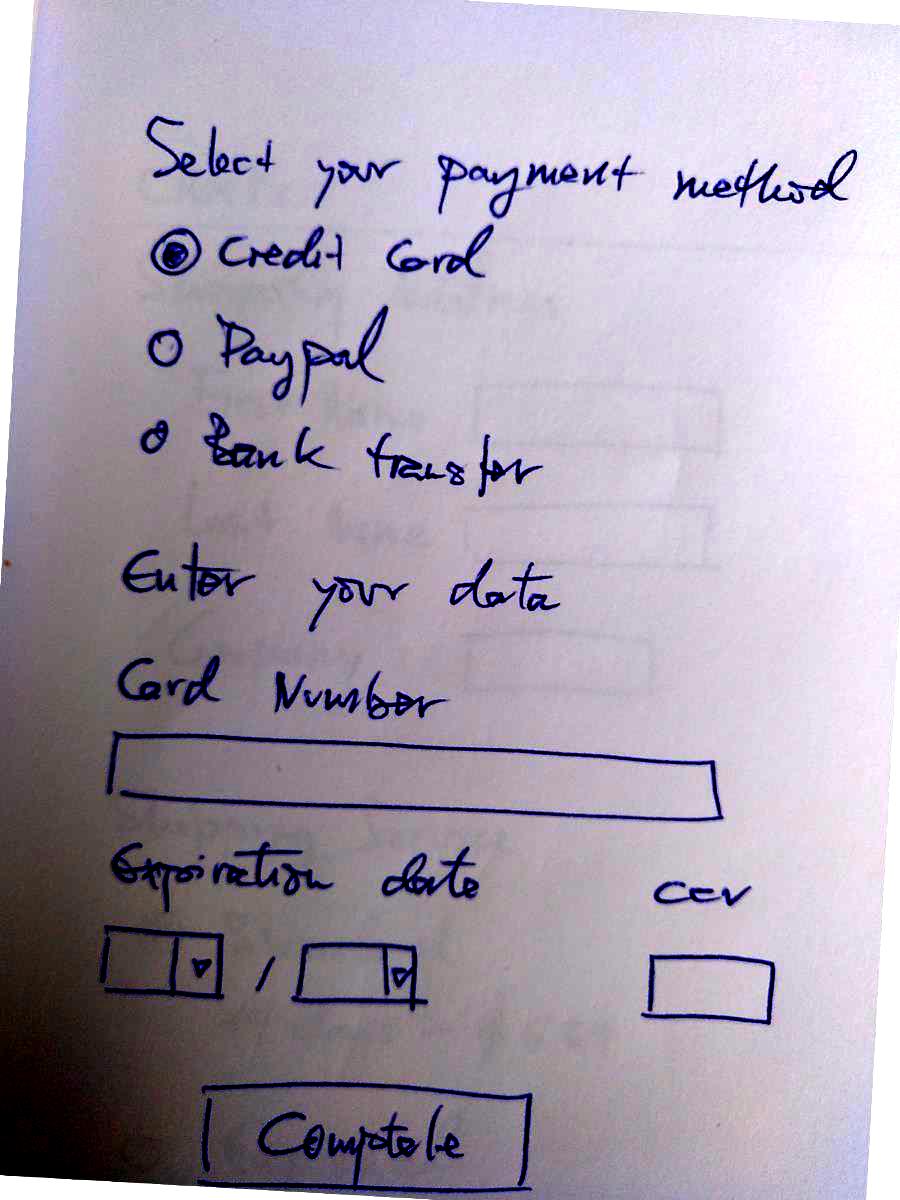 Select your payment method
Credit Card
Paypal
Bank transfer
Enter your data
Card Number
Expiration date
ccv
/
Comptele